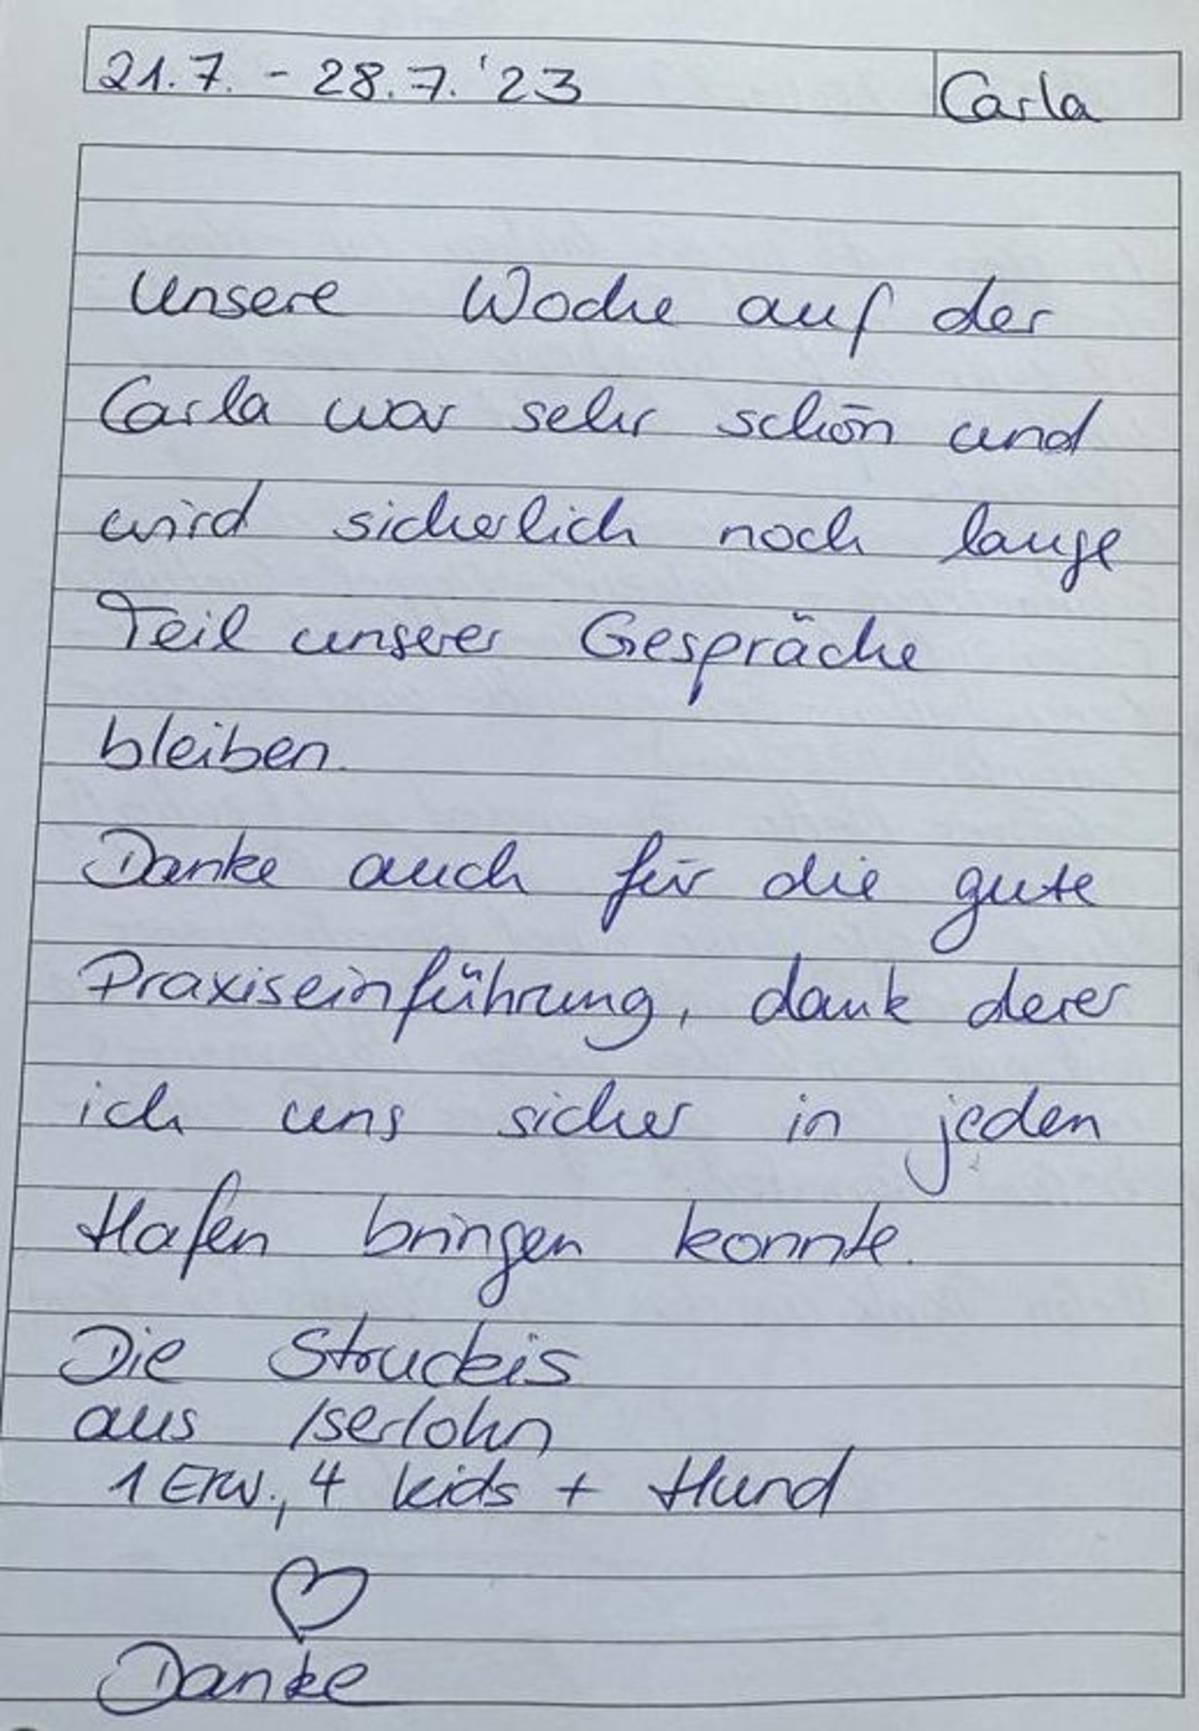 21.7. - 28.7. '23 Carla
Unsere Woche auf der
Carla war sehr schön und
wird sicherlich noch lange
Teil unserer Gespräche
bleiben.
Danke auch für die gute
Praxiseinführung, dank derer
ich uns sicher in jeden
Hafen bringen konnte.
Die Struckis
aus Iserlohn
1 Erw., 4 kids + Hund
♡
Danke